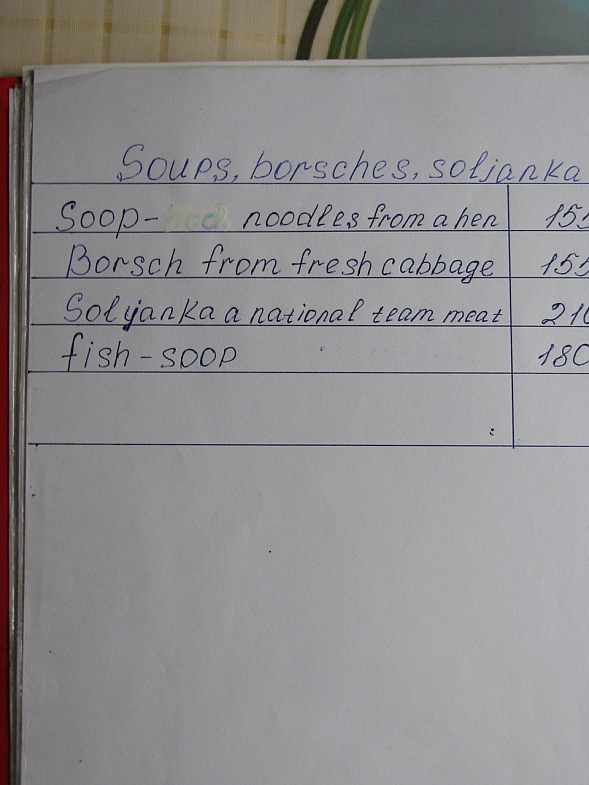 Soups, borsches, soljanka
Soop- noodles from a hen 155
Borsch from fresh cabbage 155
Solyanka a national team meat 210
fish-soop 180